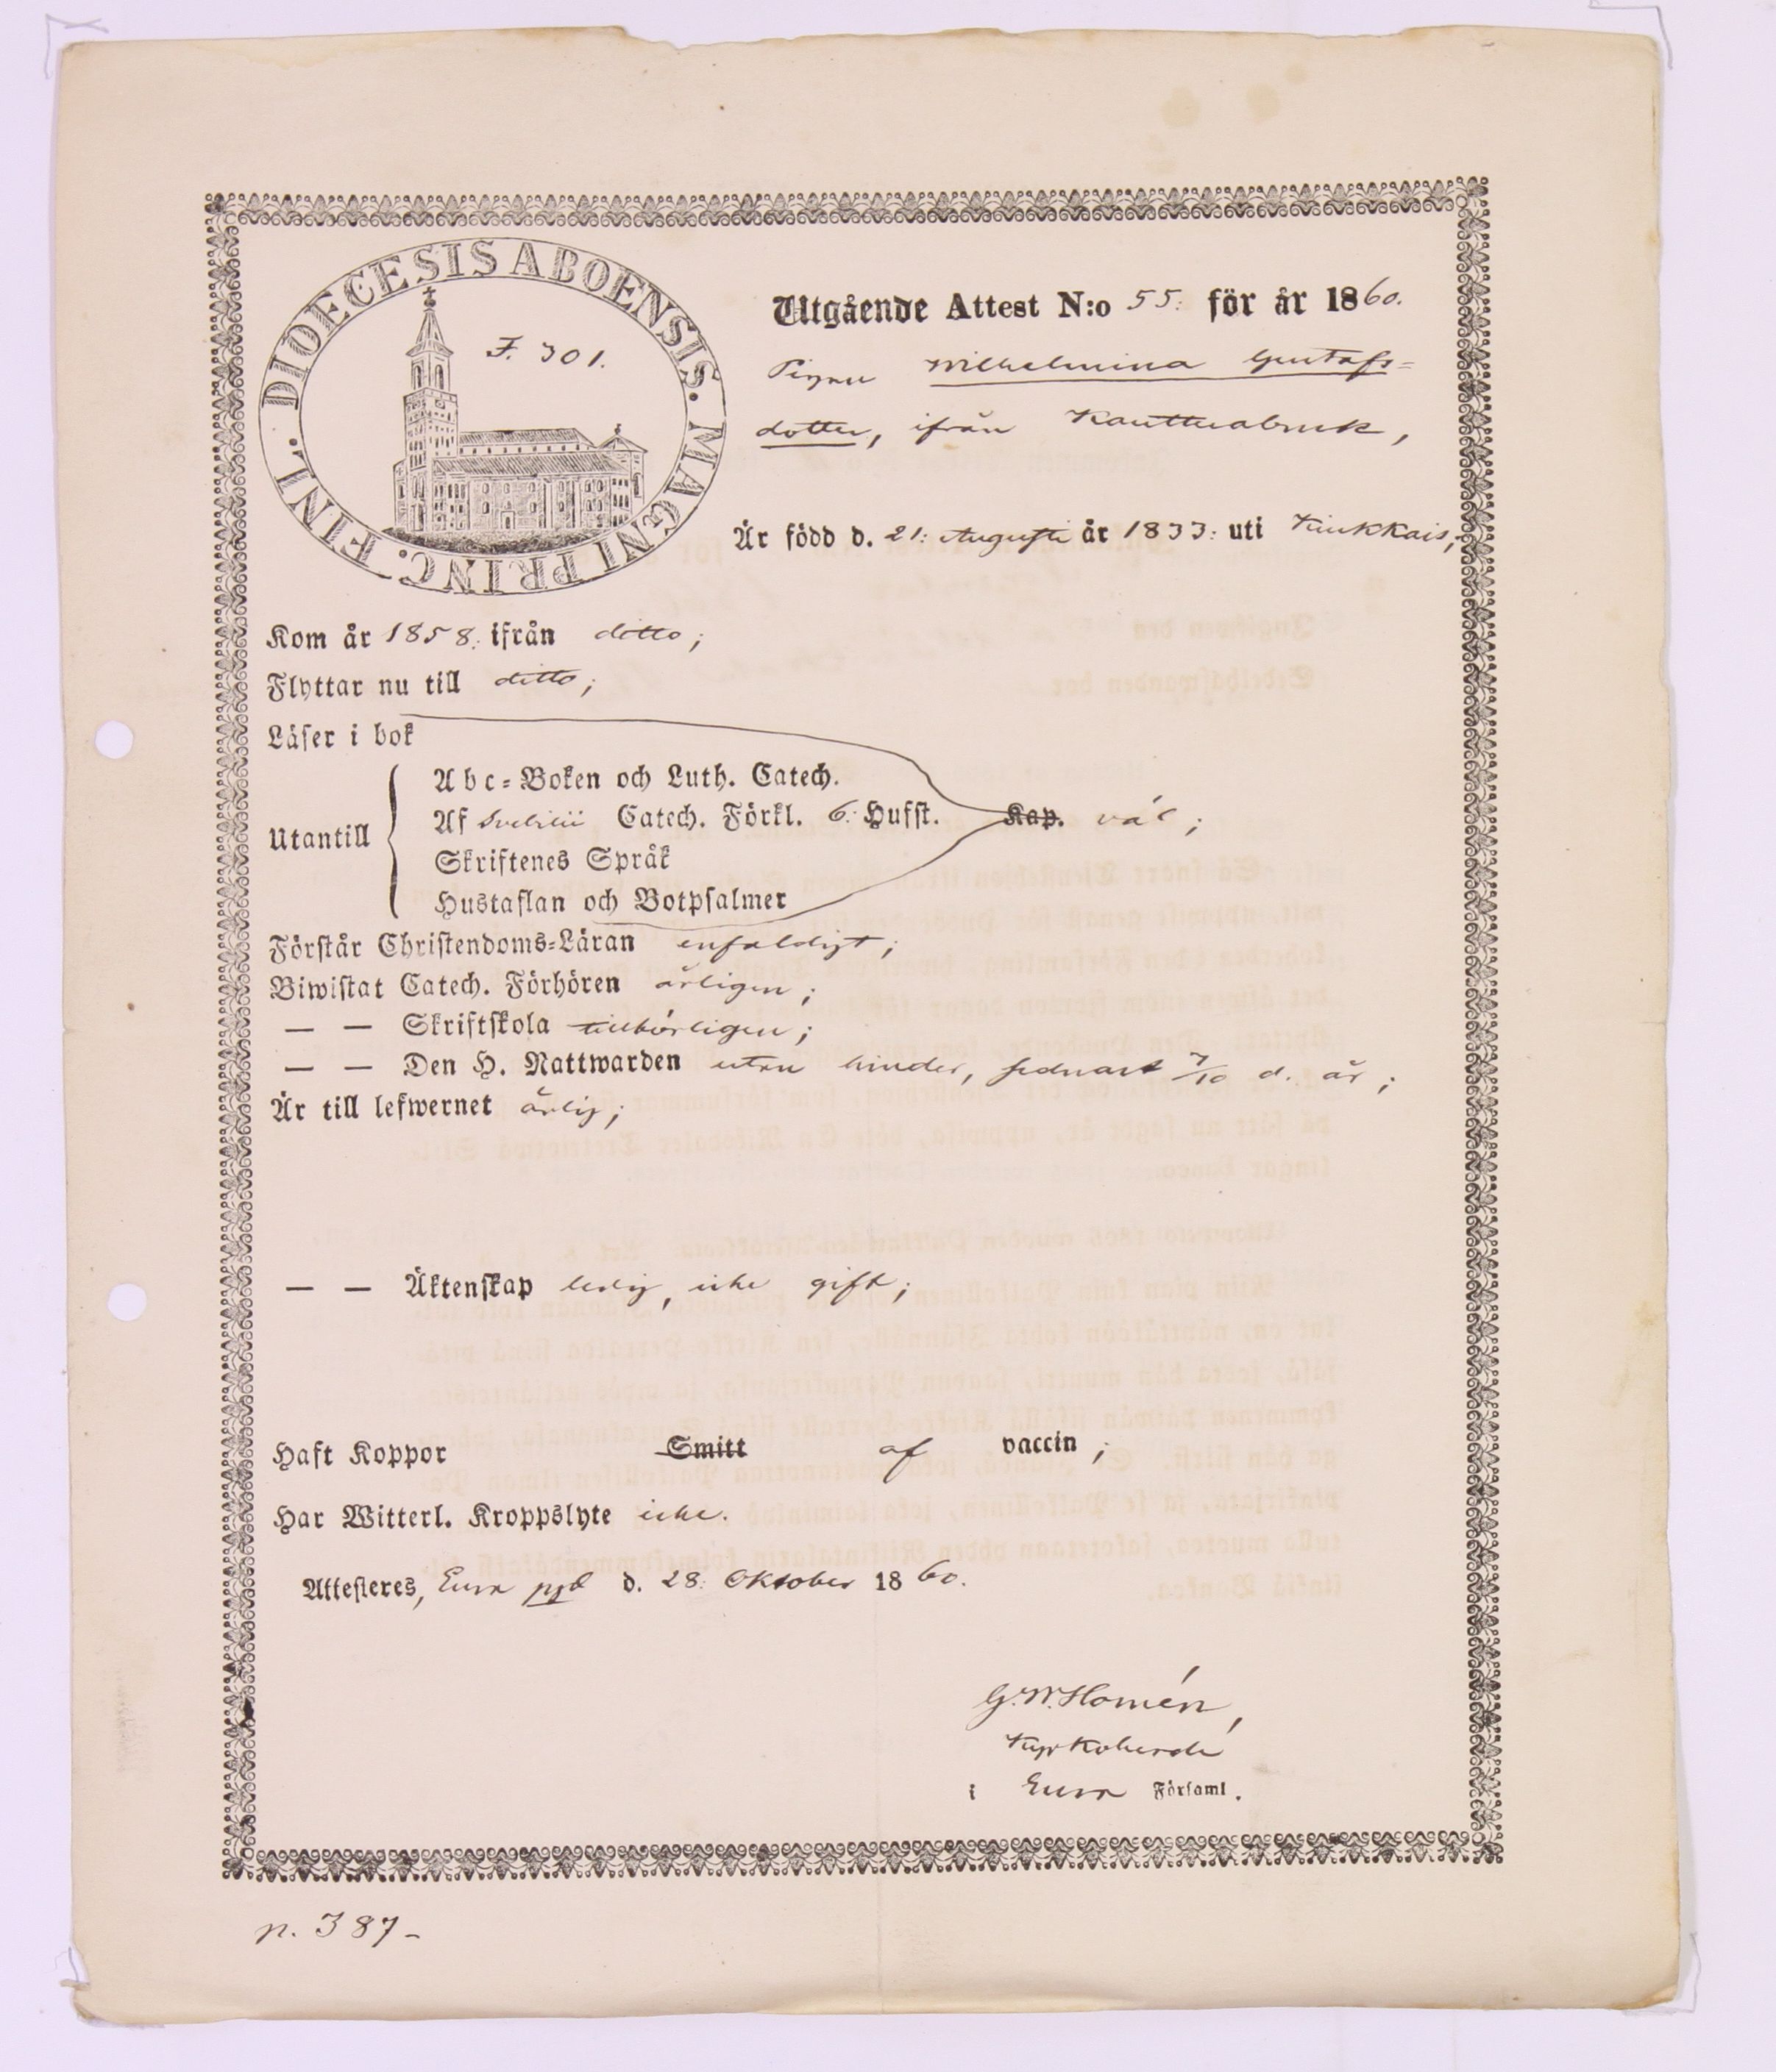 DIOECESIS ABOENSIS. MAGNI PRINC. FINL.
F. 301.
Utgående Attest N:o 55: för år 1860.
Pigan Wilhelmina Gustafs=
dotter, ifrån Kauttuabruk,
Är född d. 21: Augusti år 1833: uti Kiukkais,
Kom år 1858: ifrån ditto;
Flyttar nu till ditto;
Läser i bok
Utantill
Abc=Boken och Luth. Catech.
Af Svebilii Catech. Förkl. 6: Hufst. Kap. väl;
Skriftenes Språk
Hustaflan och Botpsalmer
Förstår Christendoms=Läran enfaldigt;
Biwistat Catech. Förhören årligen;
— — Skriftskola tillbörligen;
— — Den H. Nattwarden utan hinder, sednast 7/10 d. år;
Är till lefwernet ärlig;
— — Äktenskap ledig, icke gift;
Haft Koppor Smitt af vaccin;
Har Witterl. Kroppslyte icke.
Attesteres, Eura pgd d. 28: Oktober 1860.
G. W. Homén,
Kyrkoherde
i Eura Församl.
p. 387–